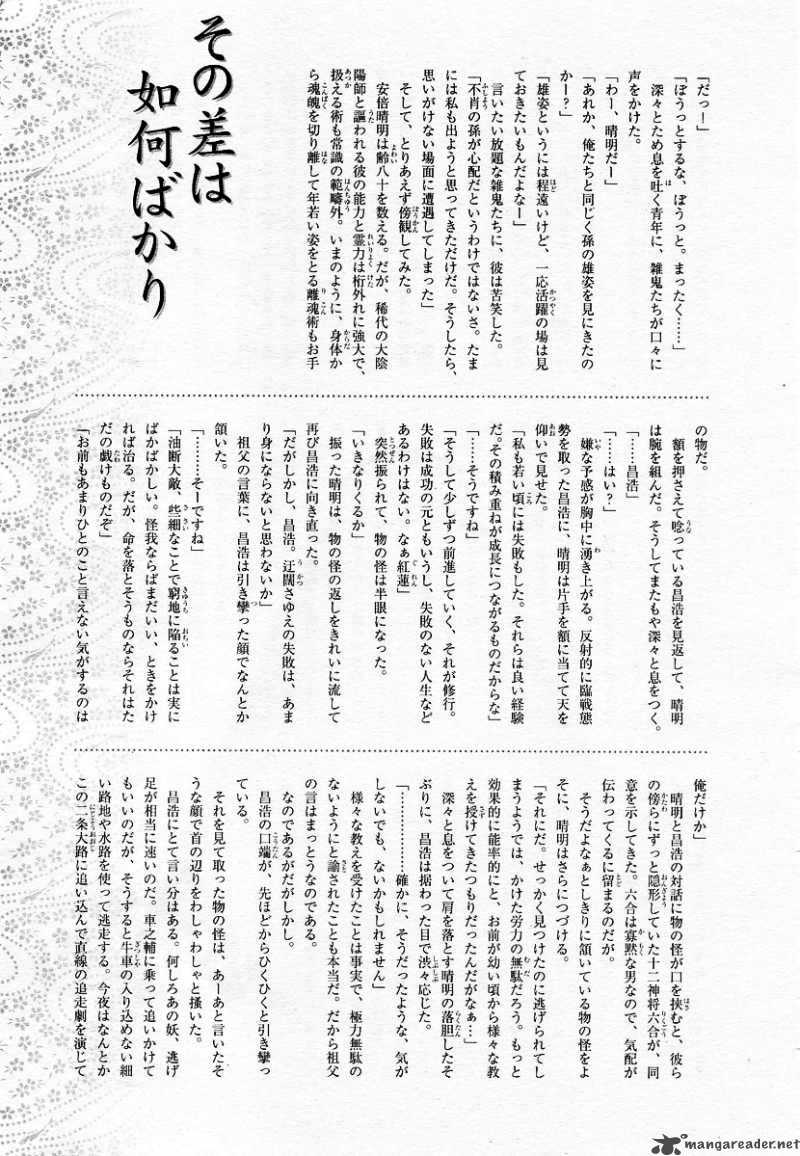 その差は
如何ばかり
「だっ！」
「ぼうっとするな、ぼうっと。まったく……」
深々とため息を吐く青年に、雑鬼たちが口々に
声をかけた。
「わー、晴明だー」
「あれか、俺たちと同じく孫の雄姿を見にきたの
かー？」
「雄姿というには程遠いけど、一応活躍の場は見
ておきたいもんだよなー」
言いたい放題な雑鬼たちに、彼は苦笑した。
「不肖の孫が心配だというわけではないさ。たま
には私も出ようと思ってきただけだ。そうしたら、
思いがけない場面に遭遇してしまった」
そして、とりあえず傍観してみた。
安倍晴明は齢八十を数える。だが、稀代の大陰
陽師と謳われる彼の能力と霊力は桁外れに強大で、
扱える術も常識の範疇外。いまのように、身体か
ら魂魄を切り離して年若い姿をとる離魂術もお手
の物だ。
額を押さえて唸っている昌浩を見返して、晴明
は腕を組んだ。そうしてまたもや深々と息をつく。
「……昌浩」
「……はい？」
嫌な予感が胸中に湧き上がる。反射的に臨戦態
勢を取った昌浩に、晴明は片手を額に当てて天を
仰いで見せた。
「私も若い頃には失敗もした。それらは良い経験
だ。その積み重ねが成長につながるものだからな」
「……そうですね」
「そうして少しずつ前進していく、それが修行。
失敗は成功の元ともいうし、失敗のない人生など
あるわけはない。なぁ紅蓮」
突然振られて、物の怪は半眼になった。
「いきなりくるか」
振った晴明は、物の怪の返しをきれいに流して
再び昌浩に向き直った。
「だがしかし、昌浩。迂闊さゆえの失敗は、あま
り身にならないと思わないか」
祖父の言葉に、昌浩は引き攣った顔でなんとか
頷いた。
「………そーですね」
「油断大敵、些細なことで窮地に陥ることは実に
ばかばかしい。怪我ならばまだいい、ときをかけ
れば治る。だが、命を落とそうものならそれはた
だの戯けものだぞ」
「お前もあまりひとのこと言えない気がするのは
俺だけか」
晴明と昌浩の対話に物の怪が口を挟むと、彼ら
の傍らにずっと隠形していた十二神将六合が、同
意を示してきた。六合は寡黙な男なので、気配が
伝わってくるに留まるのだが。
そうだよなぁとしきりに頷いている物の怪をよ
そに、晴明はさらにつづける。
「それにだ。せっかく見つけたのに逃げられてし
まうようでは、かけた労力の無駄だろう。もっと
効果的に能率的にと、お前が幼い頃から様々な教
えを授けてきたつもりだったんだがなぁ…」
深々と息をついて肩を落とす晴明の落胆したそ
ぶりに、昌浩は据わった目で渋々応じた。
「……………確かに、そうだったような、気が
しないでも、ないかもしれません」
様々な教えを受けたことは事実で、極力無駄の
ないようにと諭されたことも本当だ。だから祖父
の言はまっとうなのである。
なのであるがだがしかし。
昌浩の口端が、先ほどからひくひくと引き攣っ
ている。
それを見て取った物の怪は、あーあと言いたそ
うな顔で首の辺りをわしゃわしゃと掻いた。
昌浩にとて言い分はある。何しろあの妖、逃げ
足が相当に速いのだ。車之輔に乗って追いかけて
もいいのだが、そうすると牛車の入り込めない細
い路地や水路を使って逃走する。今夜はなんとか
この二条大路に追い込んで直線の追走劇を演じて
mangareader.net